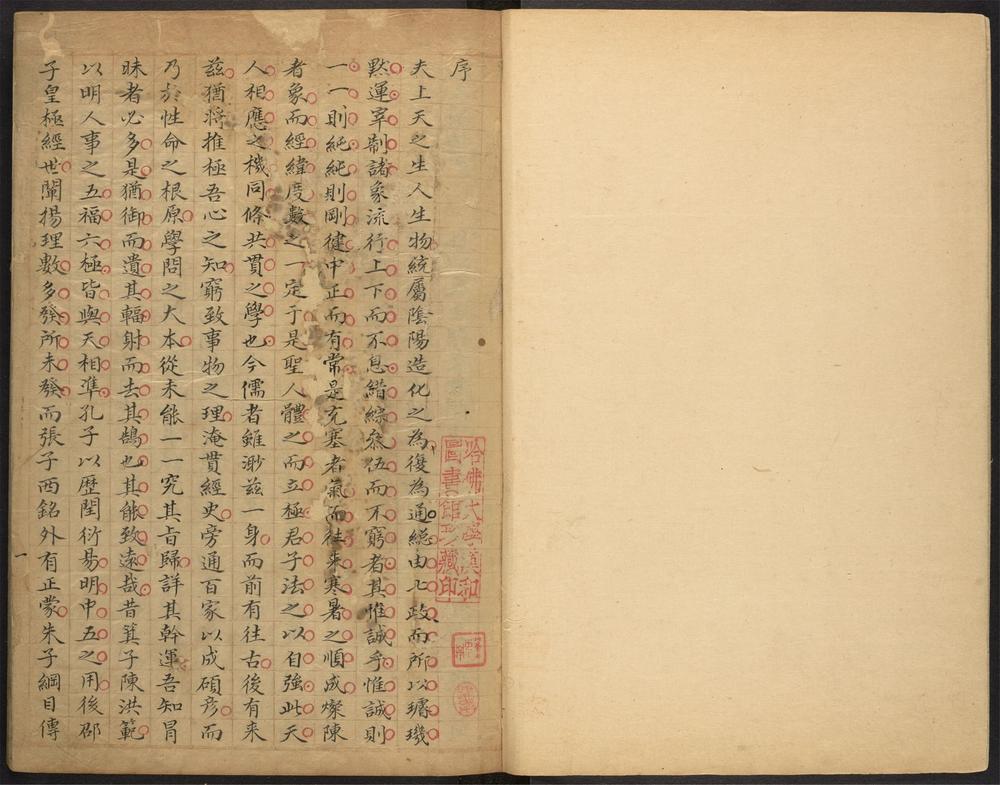 序
夫上天之生人生物統屬陰陽造化之為復為通總由七政而所以璿璣
默運宰制諸象流行上下而不息錯綜叅伍而不窮者其惟誠乎惟誠則
一一則純純則剛健中正而有常是充塞者氣而往来寒暑之順成燦陳
者象而經緯度數之一定于是聖人體之而立極君子法之以自強此天
人相應之機同條共貫之學也今儒者雖渺茲一身而前有往古後有来
茲猶將推極吾心之知窮致事物之理淹貫經史旁通百家以成碩彦而
乃於性命之根原學問之大本從未能一一究其旨歸詳其幹運吾知冐
昧者必多是猶御而遺其輻射而去其鵠也其能致遠哉昔箕子陳洪範
以明人事之五福六極皆與天相準孔子以歷閏衍易明中五之用後邵
子皇極經世闡揚理數多發所未發而張子西銘外有正蒙朱子綱目傳
一
哈佛大學漢和
圖書館珍藏印